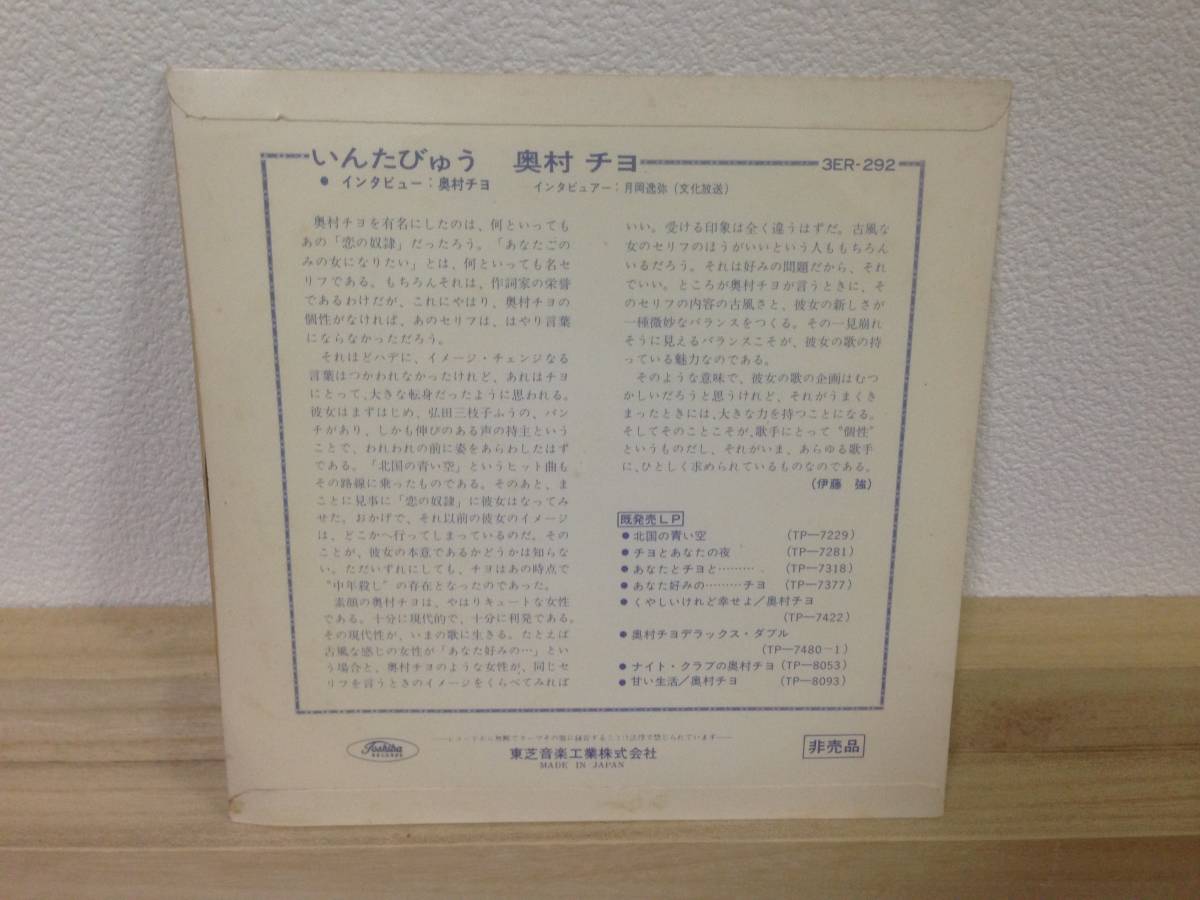 いんたびゅう 奥村 チヨ 3ER-292
● インタビュー：奥村チヨ インタビュアー：月岡逸弥（文化放送）
奥村チヨを有名にしたのは、何といっても
あの「恋の奴隷」だったろう。「あなたごの
みの女になりたい」とは、何といっても名セ
リフである。もちろんそれは、作詞家の栄誉
であるわけだが、これにやはり、奥村チヨの
個性がなければ、あのセリフは、はやり言葉
にならなかっただろう。
それほどハデに、イメージ・チェンジなる
言葉はつかわれなかったけれど、あれはチヨ
にとって、大きな転身だったように思われる。
彼女はまずはじめ、弘田三枝子ふうの、パン
チがあり、しかも伸びのある声の持主という
ことで、われわれの前に姿をあらわしたはず
である。「北国の青い空」というヒット曲も
その路線に乗ったものである。そのあと、ま
ことに見事に「恋の奴隷」に彼女はなってみ
せた。おかげで、それ以前の彼女のイメージ
は、どこかへ行ってしまっているのだ。その
ことが、彼女の本意であるかどうかは知らな
い。ただいずれにしても、チヨはあの時点で
“中年殺し”の存在となったのであった。
素顔の奥村チヨは、やはりキュートな女性
である。十分に現代的で、十分に利発である。
その現代性が、いまの歌に生きる。たとえば
古風な感じの女性が「あなた好みの…」とい
う場合と、奥村チヨのような女性が、同じセ
リフを言うときのイメージをくらべてみれば
いい。受ける印象は全く違うはずだ。古風な
女のセリフのほうがいいという人ももちろん
いるだろう。それは好みの問題だから、それ
でいい。ところが奥村チヨが言うときに、そ
のセリフの内容の古風さと、彼女の新しさが
一種微妙なバランスをつくる。その一見崩れ
そうに見えるバランスこそが、彼女の歌の持
っている魅力なのである。
そのような意味で、彼女の歌の企画はむつ
かしいだろうと思うけれど、それがうまくき
まったときには、大きな力を持つことになる。
そしてそのことこそが、歌手にとって“個性”
というものだし、それがいま、あらゆる歌手
に、ひとしく求められているものなのである。
（伊藤 強）
既発売LP
● 北国の青い空 （TP—7229）
● チヨとあなたの夜 （TP—7281）
● あなたとチヨと……… （TP—7318）
● あなた好みの………チヨ （TP—7377）
● くやしいけれど幸せよ／奥村チヨ
（TP—7422）
● 奥村チヨデラックス・ダブル
（TP—7480—1）
● ナイト・クラブの奥村チヨ （TP—8053）
● 甘い生活／奥村チヨ （TP—8093）
—レコードから無断でテープその他に録音することは法律で禁じられています—
Toshiba RECORDS 東芝音楽工業株式会社 非売品
MADE IN JAPAN